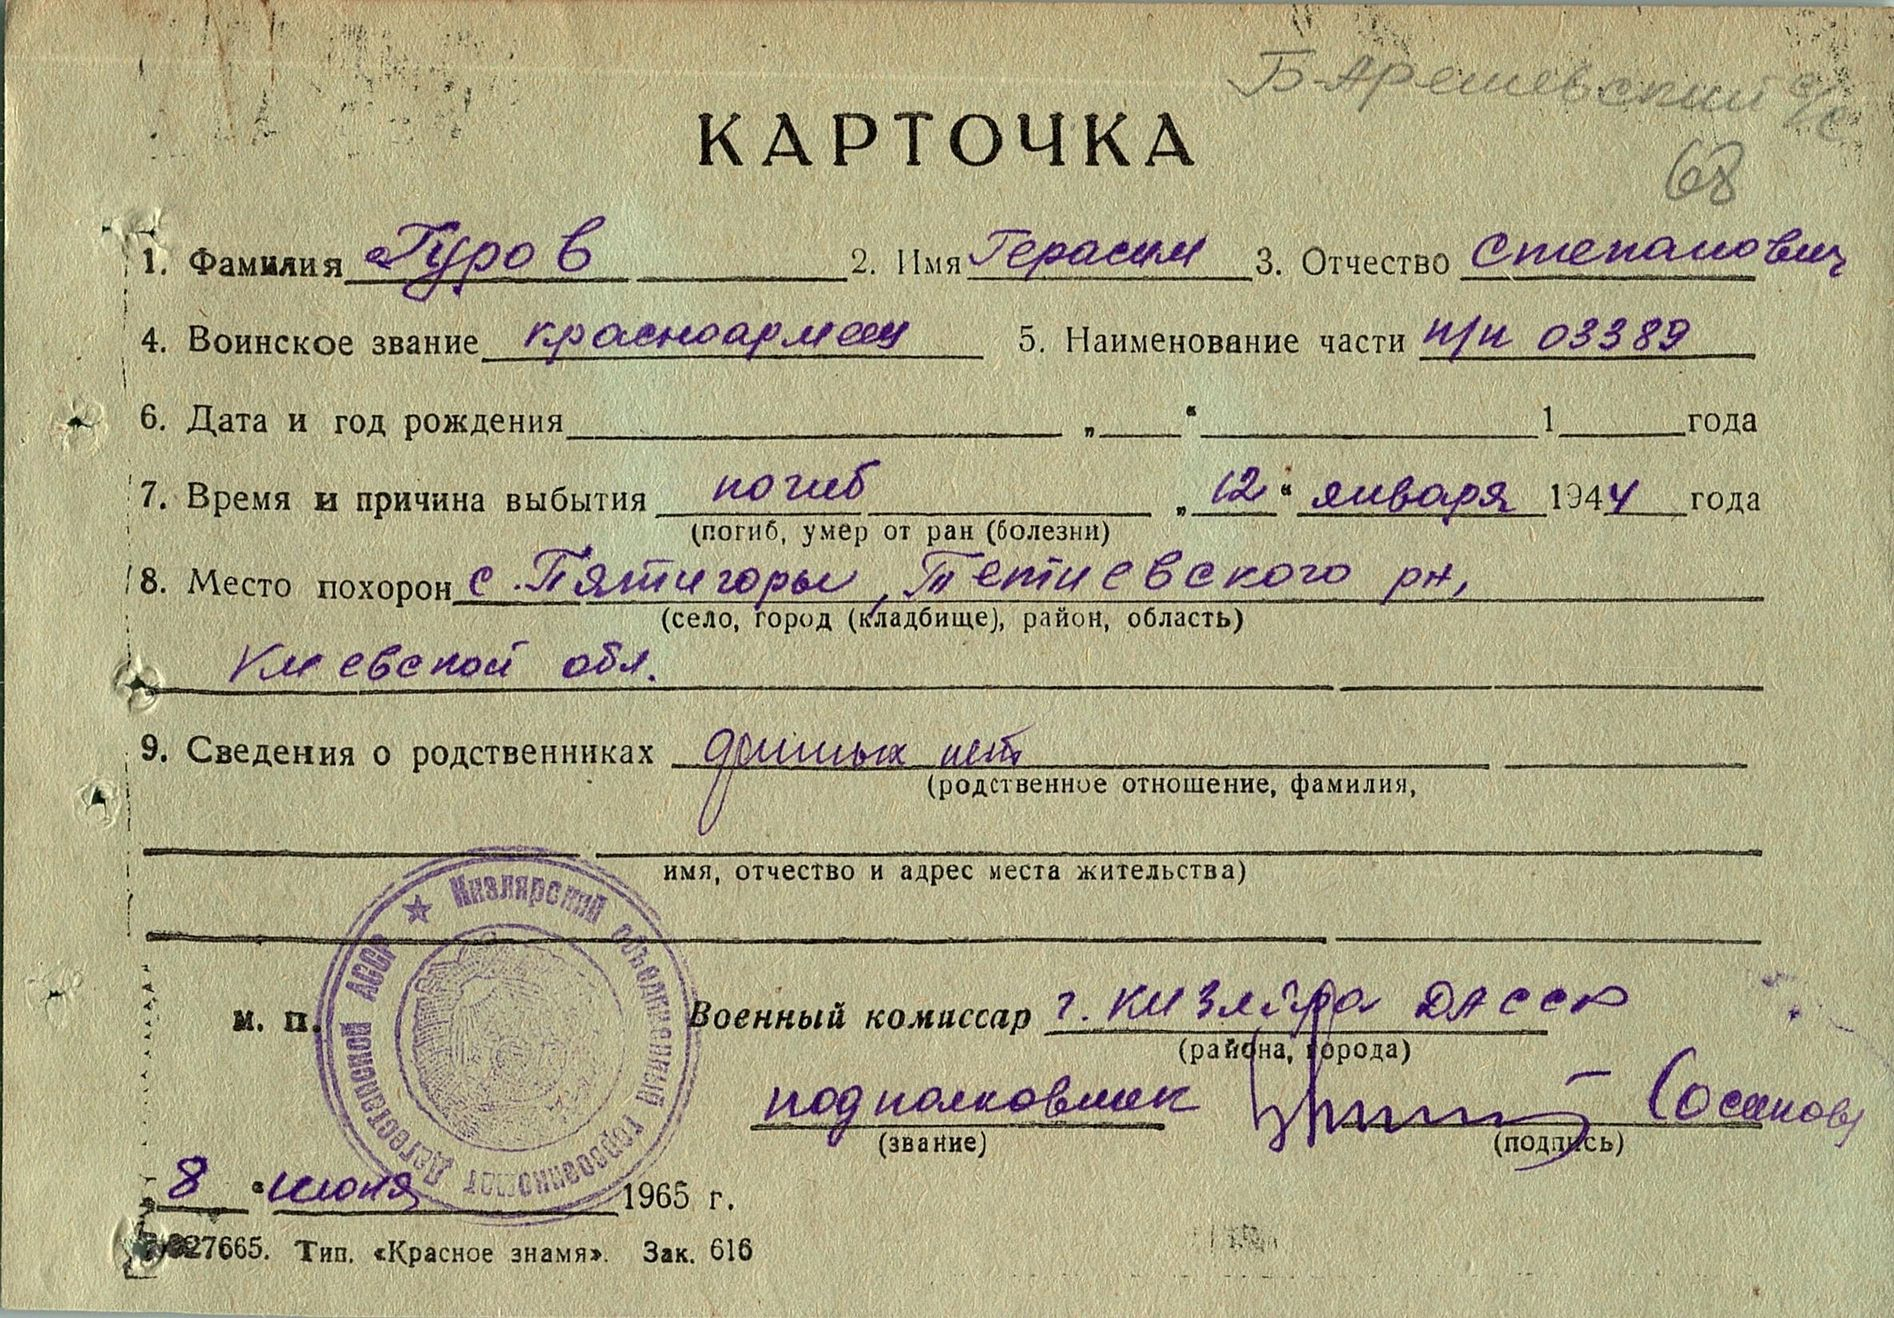 Б-Арешевский с/с
68
КАРТОЧКА
1. Фамилия Гуров 2. Имя Герасим 3. Отчество Степанович
4. Воинское звание красноармеец 5. Наименование части п/п 03389
6. Дата и год рождения „ “ 1 года
7. Время и причина выбытия погиб „12“ января 1944 года
(погиб, умер от ран (болезни)
8. Место похорон с. Пятигоры, Тетиевского рн,
(село, город (кладбище), район, область)
Киевской обл.
9. Сведения о родственниках данных нет
(родственное отношение, фамилия,
имя, отчество и адрес места жительства)
Кизлярский объединенный горвоенкомат Дагестанской АССР
м. п. Военный комиссар г. Кизляра ДАССР
(района, города)
подполковник (Осипов)
(звание) (подпись)
8 “ июня 1965 г.
27665. Тип. «Красное знамя». Зак. 616